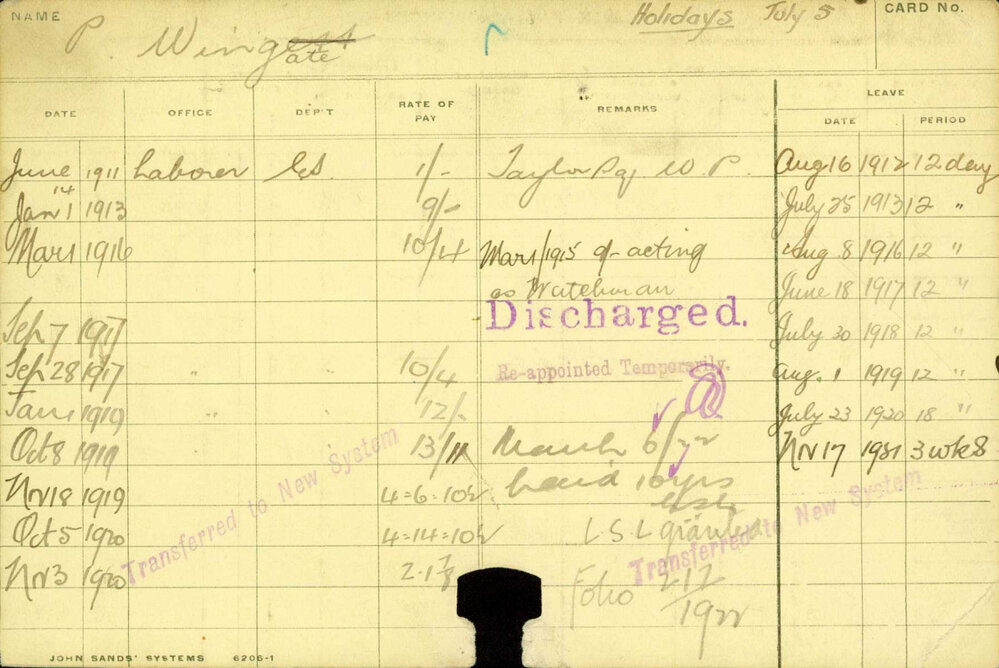 NAME P. Wingate Holidays July 5 CARD No.
DATE OFFICE DEP'T RATE OF PAY REMARKS LEAVE
DATE PERIOD
June 14 1911 Laborer 1/- W. P. Aug 16 1912 12 day
Jan 1 1913 9/- July 25 1913 12 "
Mar 1 1916 10/4 Mar 1/1915 9/- acting Aug. 8 1916 12 "
as Watchman June 18 1917 12 "
Sep 7 1917 Discharged. July 30 1918 12 "
Sep 28 1917 " 10/4 Re-appointed Temporarily. Aug. 1 1919 12 "
Jan 1 1919 " 12/- July 23 1920 18 "
Oct 8 1919 13/11 March 6/22 Nov 17 1921 3 wks
Nov 18 1919 4=6=10½ 10 yrs
Oct 5 1920 4=14=10½ L.S.L granted
Nov 3 1920 Folio 212/1922
Transferred to New System
Transferred to New System
JOHN SANDS' SYSTEMS 6206-1